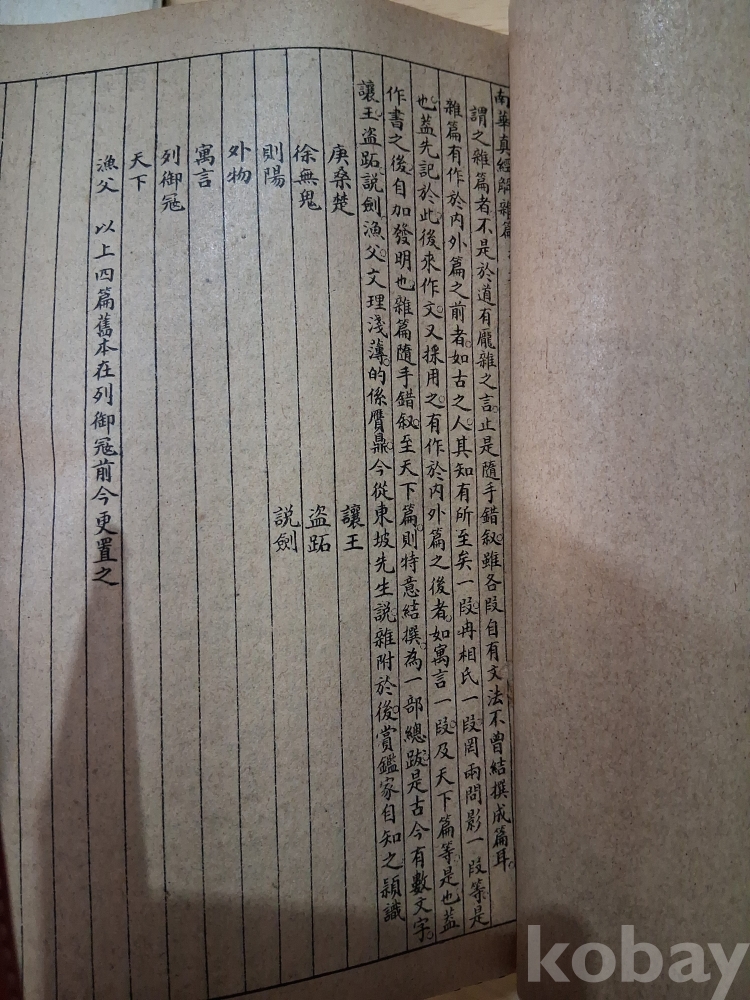 南華真經解雜篇
謂之雜篇者不是於道有龐雜之言止是隨手錯叙雖各段自有文法不曾結撰成篇耳
雜篇有作於內外篇之前者如古之人其知有所至矣一段冉相氏一段罔兩問影一段等是
也蓋先記於此後來作文又採用之有作於內外篇之後者如寓言一段及天下篇等是也蓋
作書之後自加發明也雜篇隨手錯叙至天下篇則特意結撰為一部總跋是古今有數文字
讓王盜跖說劍漁父文理淺薄的係贗鼎今從東坡先生說雜附於後賞鑑家自知之穎識
庚桑楚
徐無鬼
則陽
外物
寓言
列御寇
天下
讓王
盜跖
說劍
漁父 以上四篇舊本在列御寇前今更置之
kobay